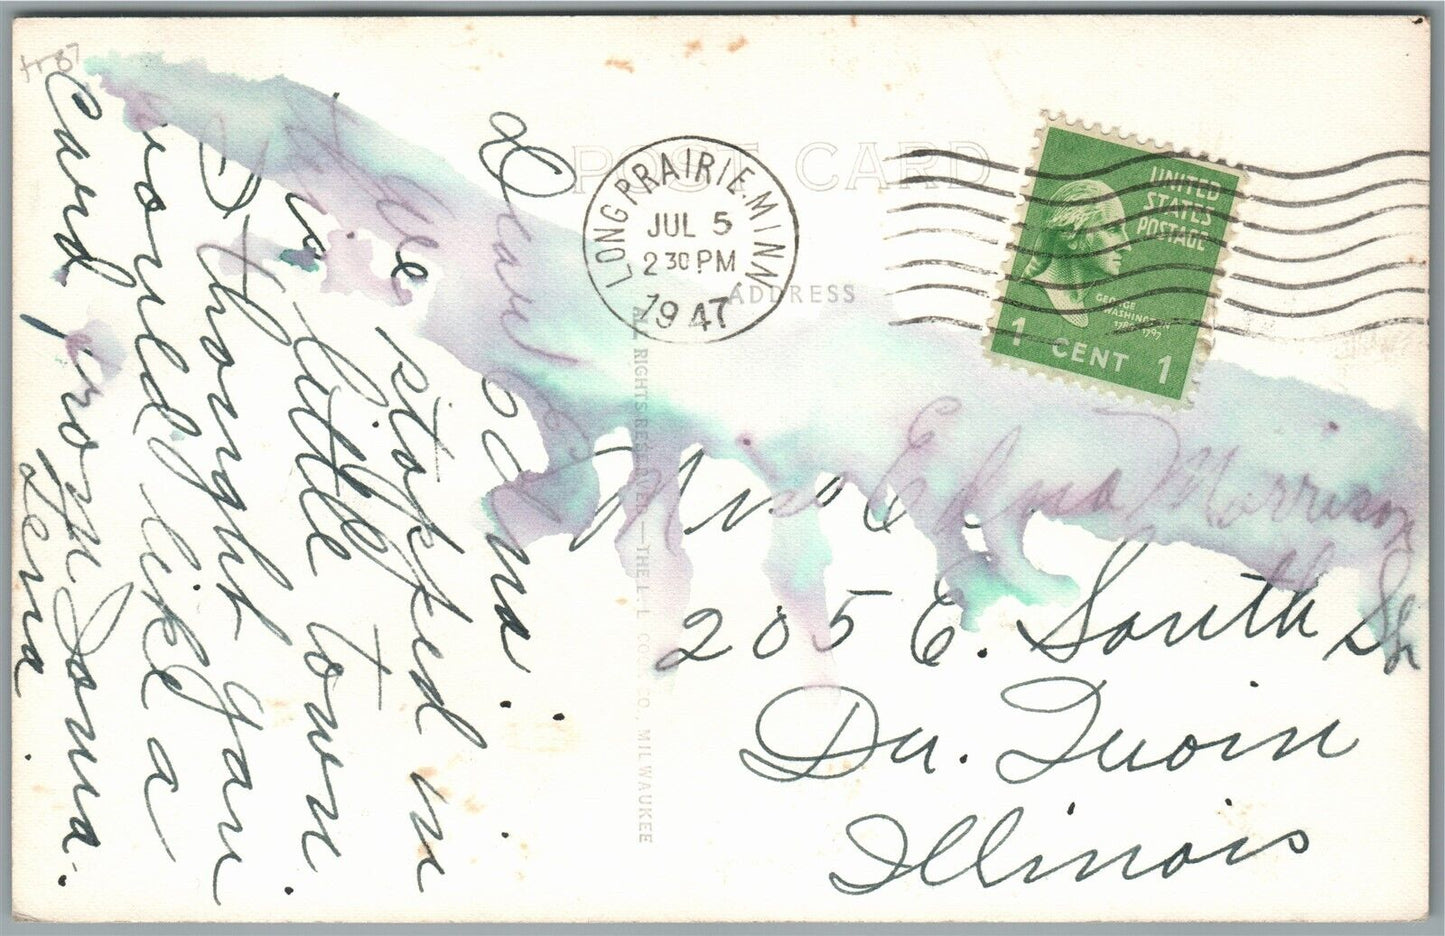 POST CARD
LONG PRAIRIE, MINN.
JUL 5
2 30 PM
1947
UNITED
STATES
POSTAGE
GEORGE
WASHINGTON
1 CENT 1
ADDRESS
ALL RIGHTS RESERVED—THE L. L. COOK CO., MILWAUKEE
Dear Edna.
We stopped in
a little town
& thought you
would like a
card from
Lena
Miss Edna Morrison
205 E. South St
Du. Quoin
Illinois